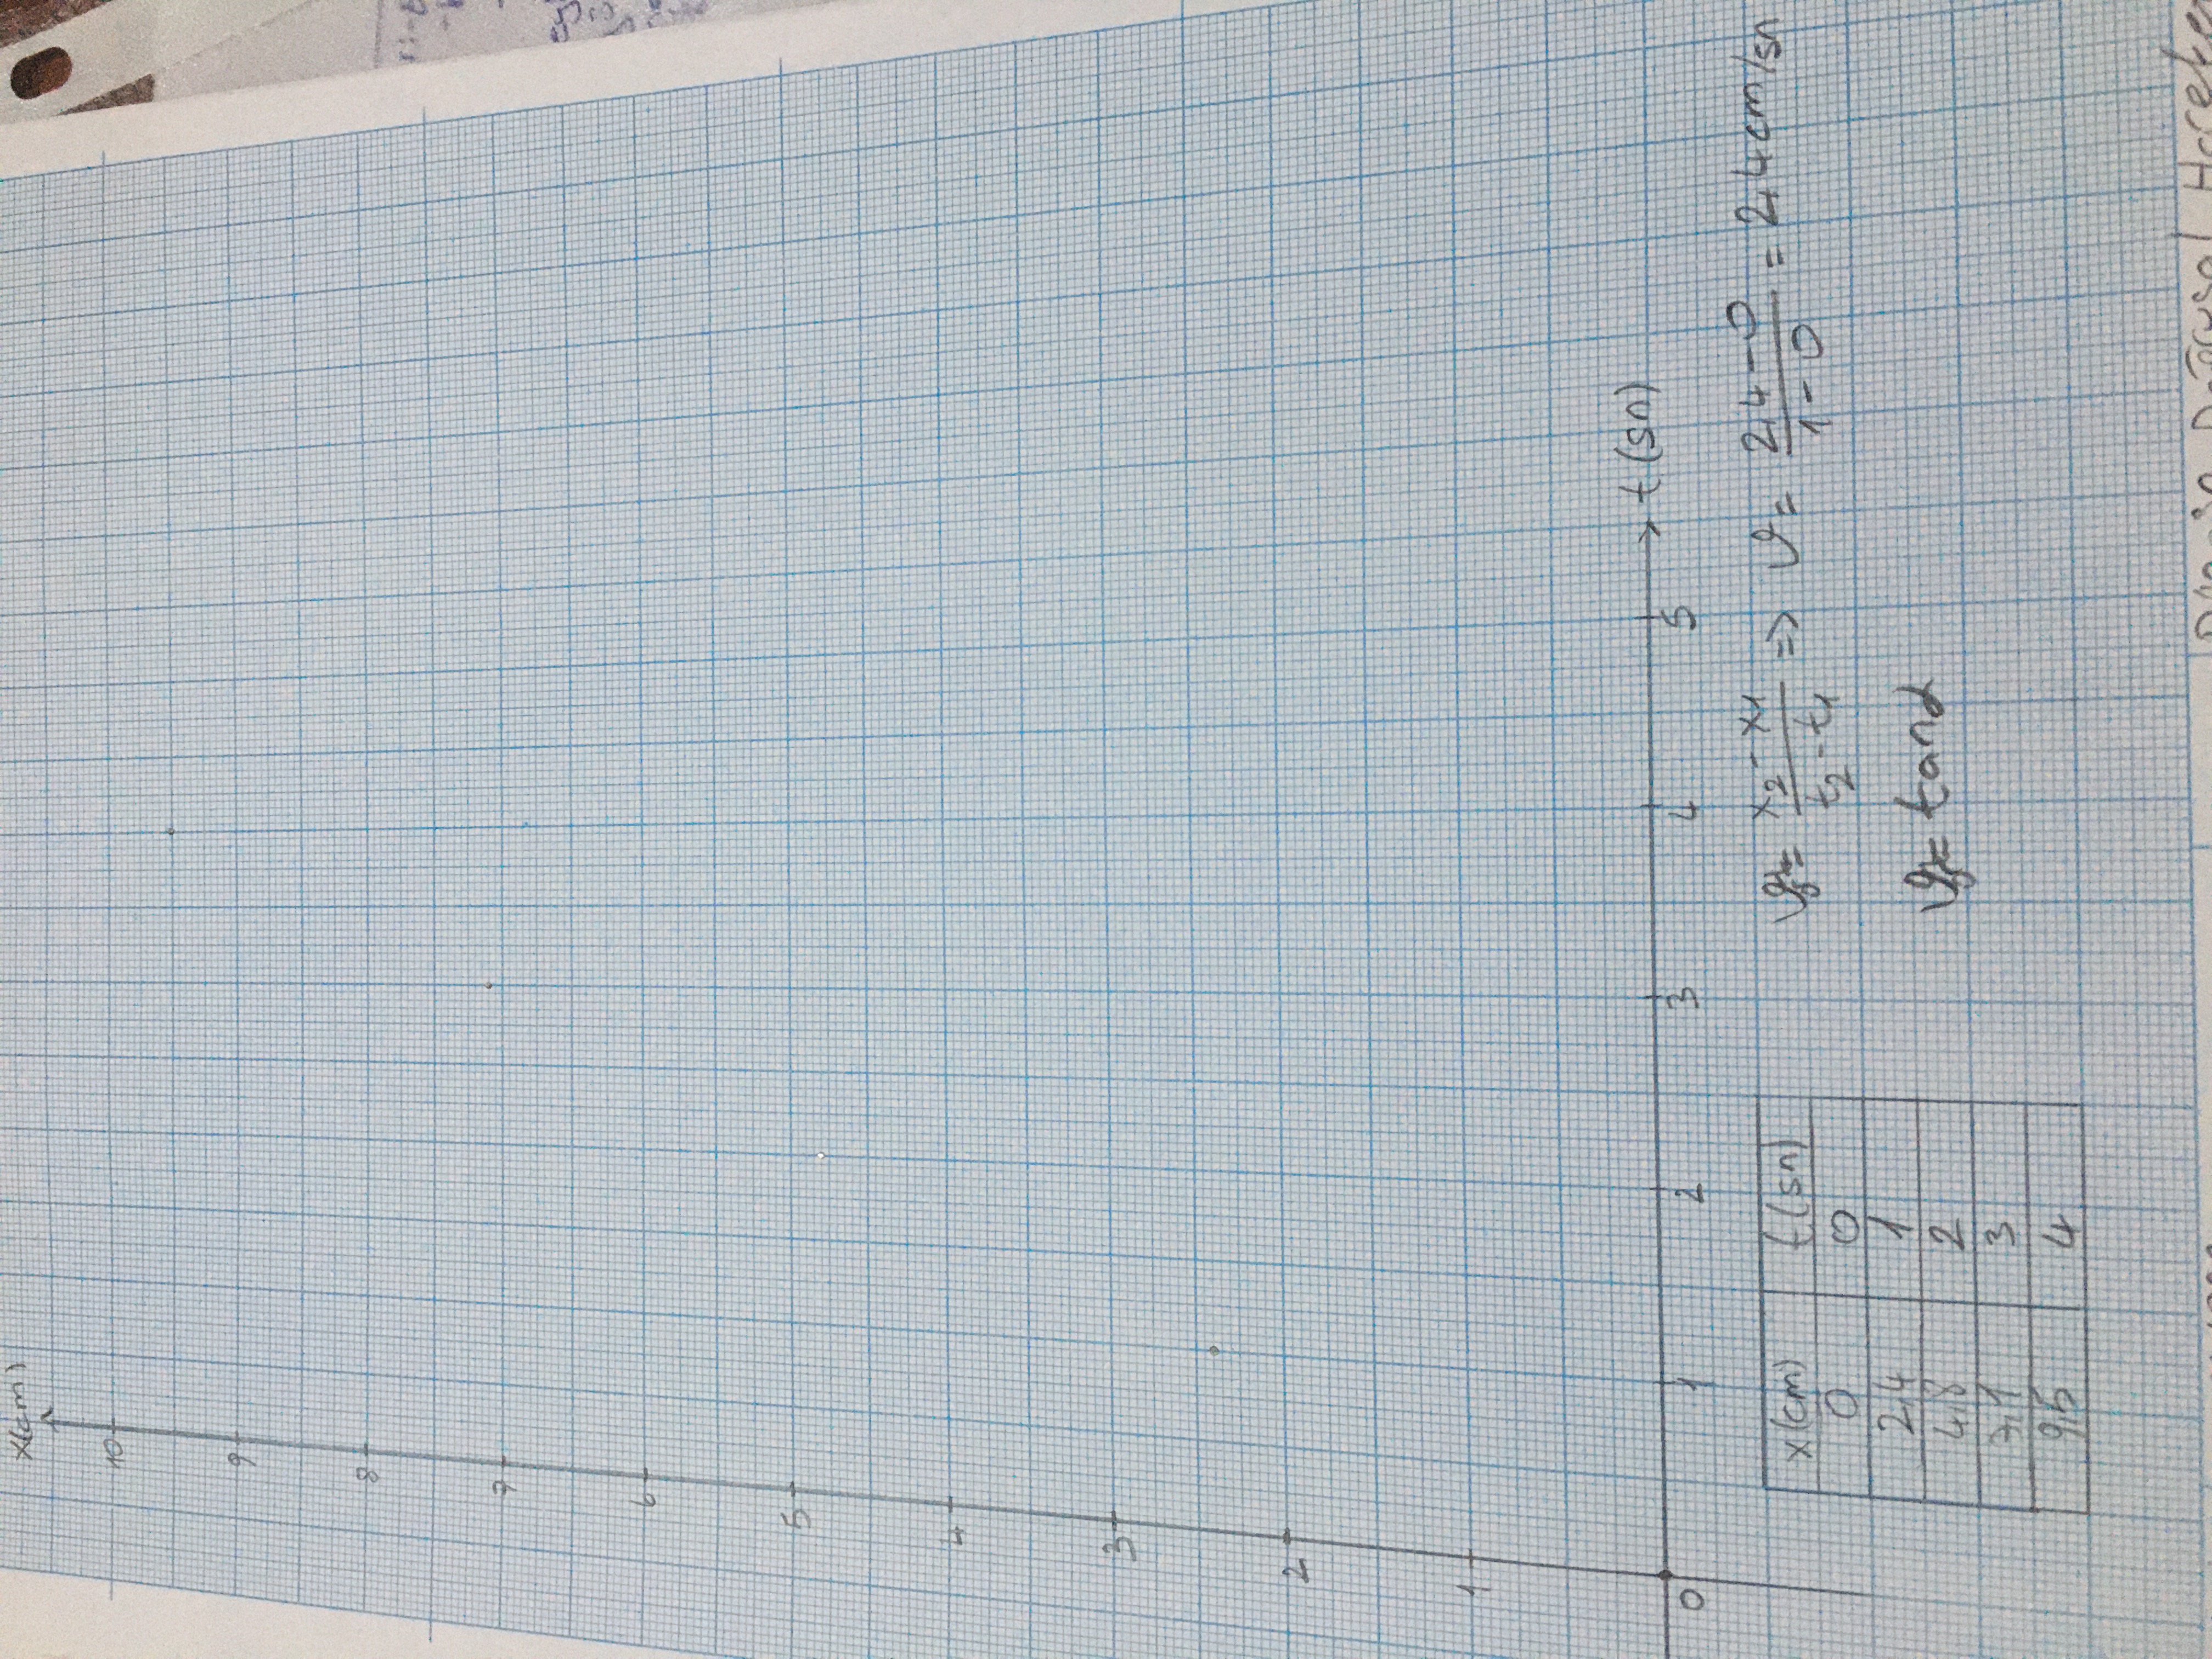 x(cm)
10
9
8
7
6
5
4
3
2
1
0 1 2 3 4 5 t (sn)
x(cm) t(sn)
0 0
2,4 1
4,8 2
7,1 3
9,5 4
ϑ = x₂ - x₁ / t₂ - t₁ => ϑ = 2,4 - 0 / 1 - 0 = 2,4 cm/sn
ϑ = tanα
Doğrusal